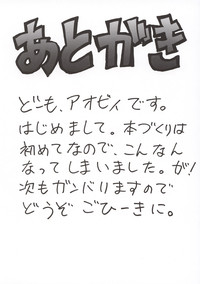 あとがき
どーも、アオビィです。
はじめまして。本づくりは
初めてなので、こんなん
なってしまいました。が!
次もガンバリますので
どうぞ ごひーきに。